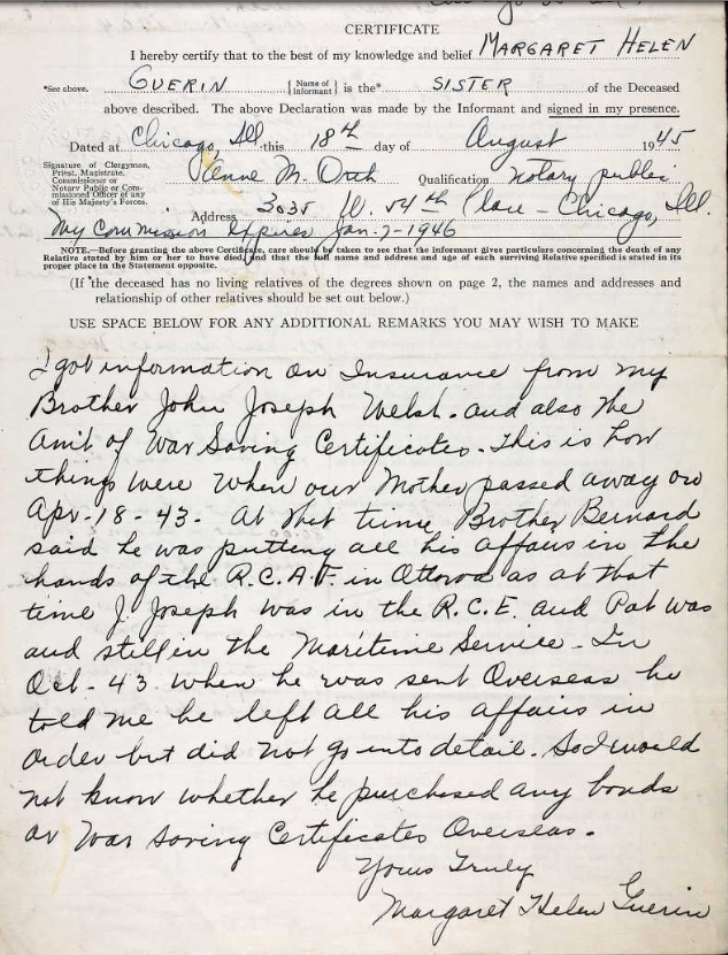 CERTIFICATE
I hereby certify that to the best of my knowledge and belief MARGARET HELEN
*See above. GUERIN {Name of Informant} is the* SISTER of the Deceased
above described. The above Declaration was made by the Informant and signed in my presence.
Dated at Chicago, Ill. this 18th day of August 1945
Signature of Clergyman,
Priest, Magistrate,
Commissioner or
Notary Public or Com-
missioned Officer of any
of His Majesty's Forces.
M. Orth Qualification notary public
Address 3035 W. 54th Place - Chicago, Ill.
My Commission Expires Jan. 7-1946
NOTE.—Before granting the above Certificate, care should be taken to see that the informant gives particulars concerning the death of any
Relative stated by him or her to have died, and that the full name and address and age of each surviving Relative specified is stated in its
proper place in the Statement opposite.
(If the deceased has no living relatives of the degrees shown on page 2, the names and addresses and
relationship of other relatives should be set out below.)
USE SPACE BELOW FOR ANY ADDITIONAL REMARKS YOU MAY WISH TO MAKE
I got information on Insurance from my
Brother John Joseph Welsh. and also the
Amt of War Saving Certificates. This is how
things were when our Mother passed away on
Apr-18-43. At that time Brother Bernard
said he was putting all his affairs in the
hands of the R.C.A.F. in Ottowa as at that
time J. Joseph was in the R.C.E. and Pat was
and still in the Maritime Service. In
Oct-43 when he was sent Overseas he
told me he left all his affairs in
order but did not go into detail. So I would
not know whether he purchased any bonds
or War Saving Certificates Overseas.
Yours Truly
Margaret Helen Guerin